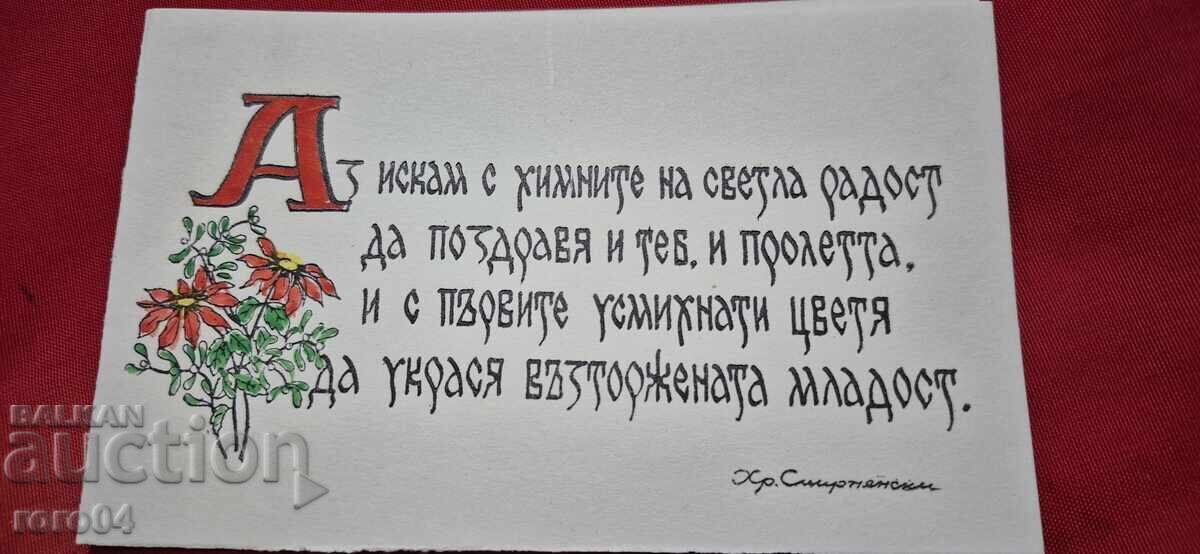 Аз искам с химните на светла радост
да поздравя и теб, и пролетта,
и с първите усмихнати цветя
да украся възторжената младост.
Хр. Смирненски
BALKAN
auction
roro04